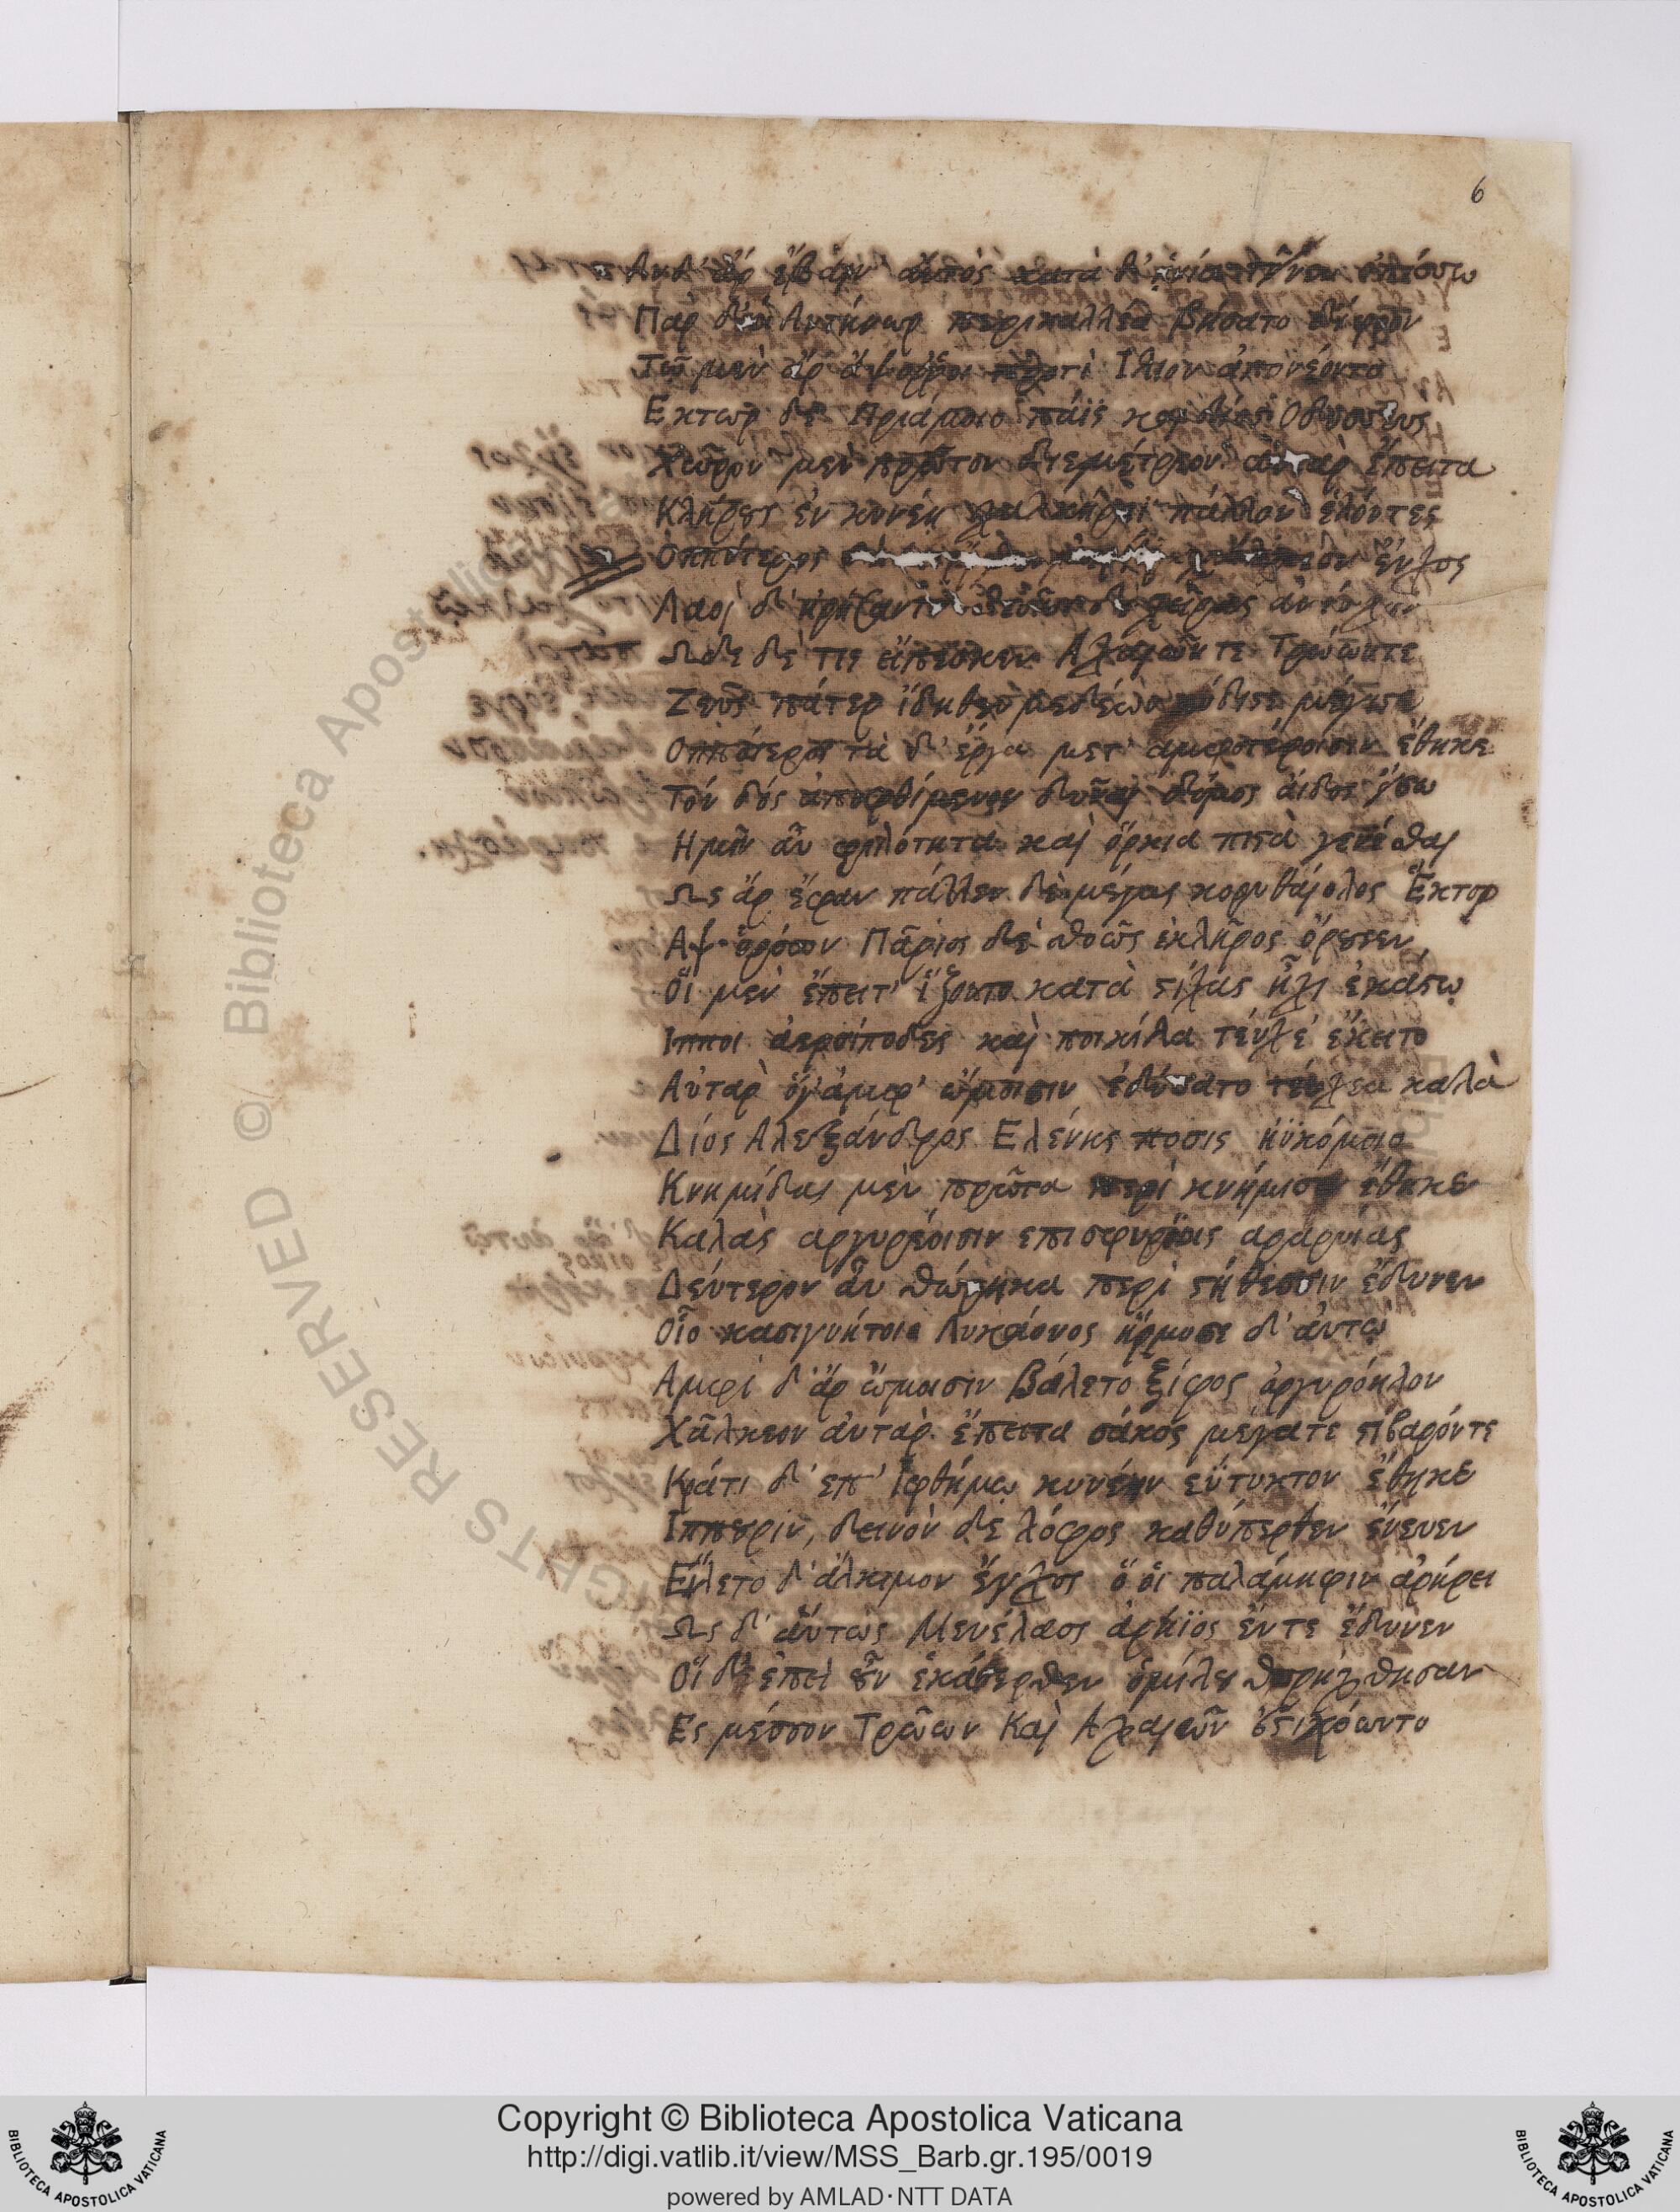 6
Ανδ' ἄρ ἔβαιν' αὐτὸς κατὰ δ' ὀπίσσω
Πὰρ δέ οἱ Αντήνωρ περικαλλέα βήσατο δίφρον
Τὼ μὲν ἄρ ἄψοῤῥοι προτὶ Ιλιον ἀπονέοντο
Εκτωρ δὲ Πριάμοιο πάϊς καὶ δῖος Οδυσσεὺς
Χῶρον μὲν πρῶτον διεμέτρεον αὐτὰρ ἔπειτα
Κλήρους ἐν κυνέη χαλκήρεϊ πάλλον ἑλόντες
Ὁππότερος ἔγχος
Λαοὶ δ' ἠρήσαντο χεῖρας ἀνέσχον
Ωδε δέ τις εἴπεσκεν Αχαιῶν τε Τρώων τε
Ζεῦ πάτερ ἴδηθεν μεδέων κύδιστε μέγιστε
Οππότερος τὰ δ' ἔργα μετ' αμφοτέροισιν ἔθηκε
Τὸν δὸς ἀποφθίμενον δῦναι δόμος ἄιδος ἔσω
Ημῖν αὖ φιλότητα καὶ ὅρκια πιστὰ γενέσθαι
Ως ἄρ ἔφαν πάλλεν δὲ μέγας κορυθαίολος Ἕκτορ
Αψ ὁρόων Πάριος δὲ θοῶς ἐκλῆρος ὄρουσεν
Οἵ μὲν ἔπειτ' ἵζοντο κατὰ στίχας ἧχι ἑκάστῳ
Ιπποι ἀερσίποδες καὶ ποικίλα τεύχε' ἔκειτο
Αὐτὰρ ὅγ' ἀμφ' ὤμοισιν ἐδύσατο τεύχεα καλὰ
Δίος Αλεξάνδρος Ελένης ποσις ἠϋκόμοιο
Κνημίδας μὲν πρῶτα περὶ κνήμισιν ἔθηκεν
Καλὰς αργυρέοισιν επισφυρίοις ἀραρυίας
Δεύτερον αὖ θώρηκα περὶ στήθεσσιν ἔδυνεν
Οἷο κασιγνήτοιο Λυκάονος ἥρμοσε δ' ἀυτῷ
Αμφὶ δ' ἄρ ὤμοισιν βάλετο ξίφος ἀργυρόηλον
Χᾶλκεον ἀυτὰρ ἔπειτα σάκος μέγατε στιβαρόντε
Κρᾶτι δ' ἐπ' ἰφθίμῳ κυνέην εὔτυκτον ἔθηκε
Ιππουριν, δεινὸν δὲ λόφος καθύπερθεν ἔνευεν
Εἵλετο δ' ἄλκιμον ἔγχος ὅ οἱ παλάμηφιν ἀρήρει
Ως δ' αὔτως Μενέλαος ἀρήϊος ἔντε ἔδυνεν
Οἵ δ' ἐπεὶ οὖν ἑκάτερθεν ὁμίλου θωρήχθησαν
Ες μέσσον Τρώων Καὶ Αχαιῶν ἐστιχόωντο
© Biblioteca Apostolica
RIGHTS RESERVED
Copyright © Biblioteca Apostolica Vaticana
http://digi.vatlib.it/view/MSS_Barb.gr.195/0019
powered by AMLAD·NTT DATA
BIBLIOTECA APOSTOLICA VATICANA
BIBLIOTECA APOSTOLICA VATICANA